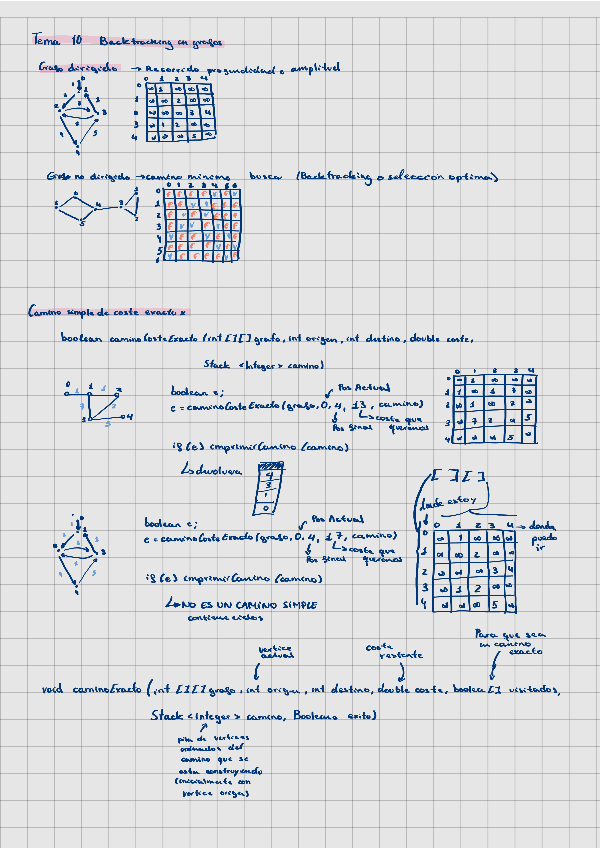 Tema 10 Backtracking en grafos
Grafo dirigido → Recorrido profundidad o amplitud
0 1 2 3 4
0 ∞ 1 ∞ ∞ ∞
1 ∞ ∞ 2 ∞ ∞
2 ∞ ∞ ∞ 3 4
3 ∞ 1 2 ∞ ∞
4 ∞ ∞ ∞ 5 ∞
Grafo no dirigido → camino minimo busca (Backtracking o selección optima)
0 1 2 3 4 5 6
Camino simple de coste exacto x
boolean caminoCosteExacto (int [][] grafo, int origen, int destino, double coste,
Stack <Integer> camino)
boolean e;
Pos Actual
e = caminoCosteExacto (grafo, 0, 4, 13, camino)
coste que queremos
Pos final
if (e) imprimirCamino (camino)
↳ devolvera
4
3
1
0
[ ] [ ]
donde estoy
boolean e;
Pos Actual
e = caminoCosteExacto (grafo, 0, 4, 17, camino)
coste que queremos
Pos final
if (e) imprimirCamino (camino)
↳ NO ES UN CAMINO SIMPLE
contiene ciclos
0 1 2 3 4 → donde puedo ir
0 ∞ 1 ∞ ∞ ∞
1 ∞ ∞ 2 ∞ ∞
2 ∞ ∞ ∞ 3 4
4 ∞ ∞ ∞ 5 ∞
Para que sea un camino exacto
vertice actual
coste restante
void caminoExacto (int [][] grafo, int origen, int destino, double coste, boolean [] visitados,
Stack <Integer> camino, Booleano exito)
pila de vertices
ordenados del
camino que se
esta construyendo
(inicialmente con
vertice origen)